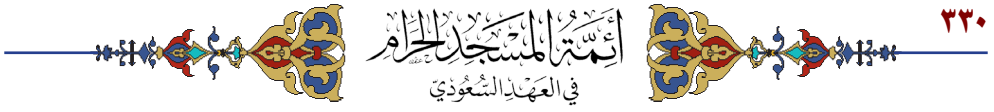 ٣٣٠
أَئِمَّةُ المَسْجِدِ الحَرَامِ
في العَهْدِ السُّعُودِيّ